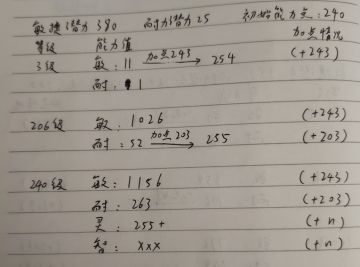 敏捷潜力390 耐力潜力25 初始能力点:240
等级 能力值 加点情况
3级 敏:11 加点243→ 254 (+243)
耐:1
206级 敏:1026 (+243)
耐:52 加点203→ 255 (+203)
240级 敏:1156 (+243)
耐:263 (+203)
灵:255+ (+n)
智:xxx (+n)